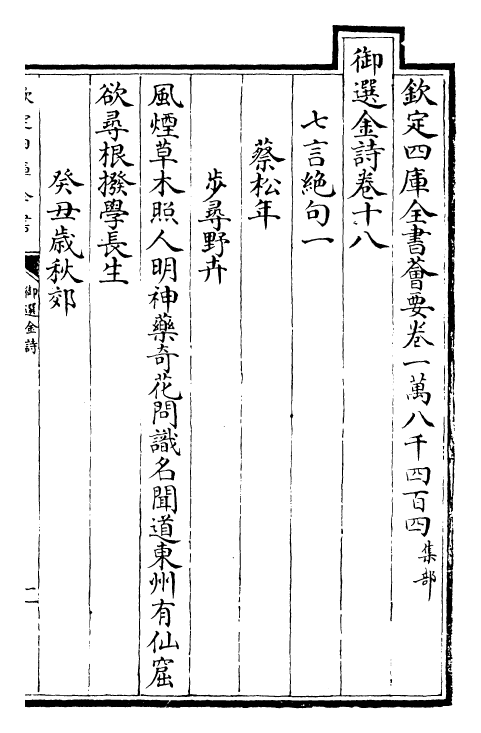 欽定四庫全書薈要卷一萬八千四百四集部
御選金詩卷十八
七言絶句一
蔡松年
步尋野卉
風煙草木照人明神藥奇花問識名聞道東州有仙窟
欲尋根撥學長生
癸丑歳秋郊
欽定四庫全書
御選金詩
一